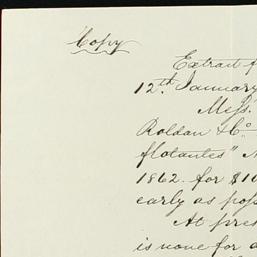 Copy
Extrait f
12th January
Mess.
Roldan & Co
flotantes" N
1862. for $10
early as pos
At pres
is none for a